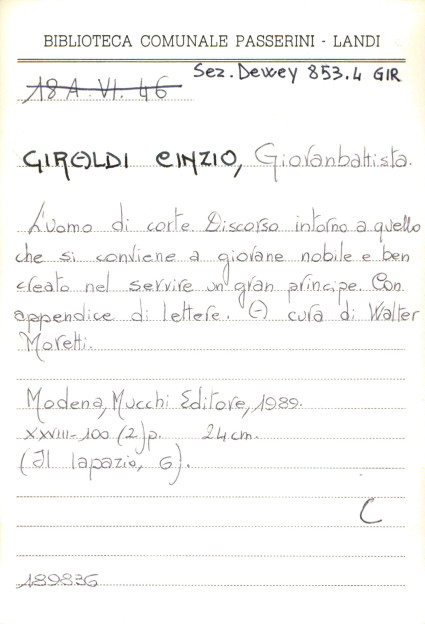 BIBLIOTECA COMUNALE PASSERINI - LANDI
Sez. Dewey 853.4 GIR
18 A. VI. 46
GIRALDI CINZIO, Giovanbattista.
L'uomo di corte. Discorso intorno a quello
che si conviene a giovane nobile e ben
creato nel servire un gran principe. Con
appendice di lettere. A cura di Walter
Moretti.
Modena, Mucchi Editore, 1989.
XXVIII-100 (2) p. 24 cm.
(Il lapazio, 6).
C
189836